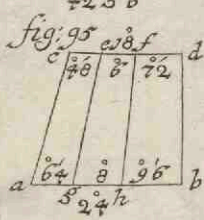 fig: 95
c e 18 f d
48 6 72
a 64 8 96 b
g 24 h